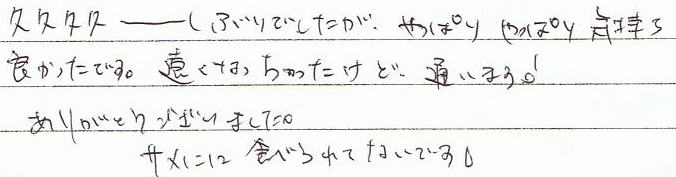 久々久々――しぶりでしたが、やっぱり やっぱり 気持ち
良かったです。遠くなっちゃったけど、通います!
ありがとうございました。
サメにに 食べられてないです。